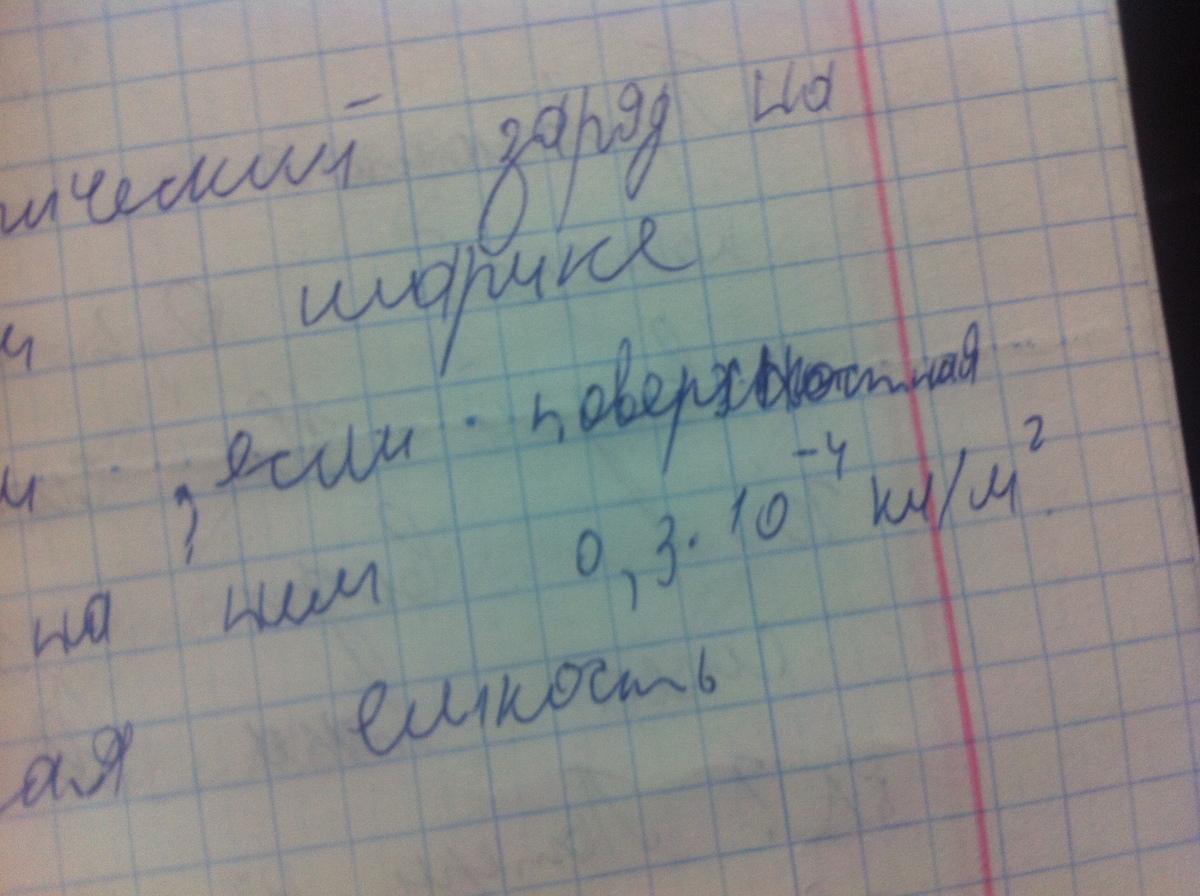 ический заряд на
м шарике
м , если поверхностная
на нем 0,3·10⁻⁴ кл/м²
ая емкость